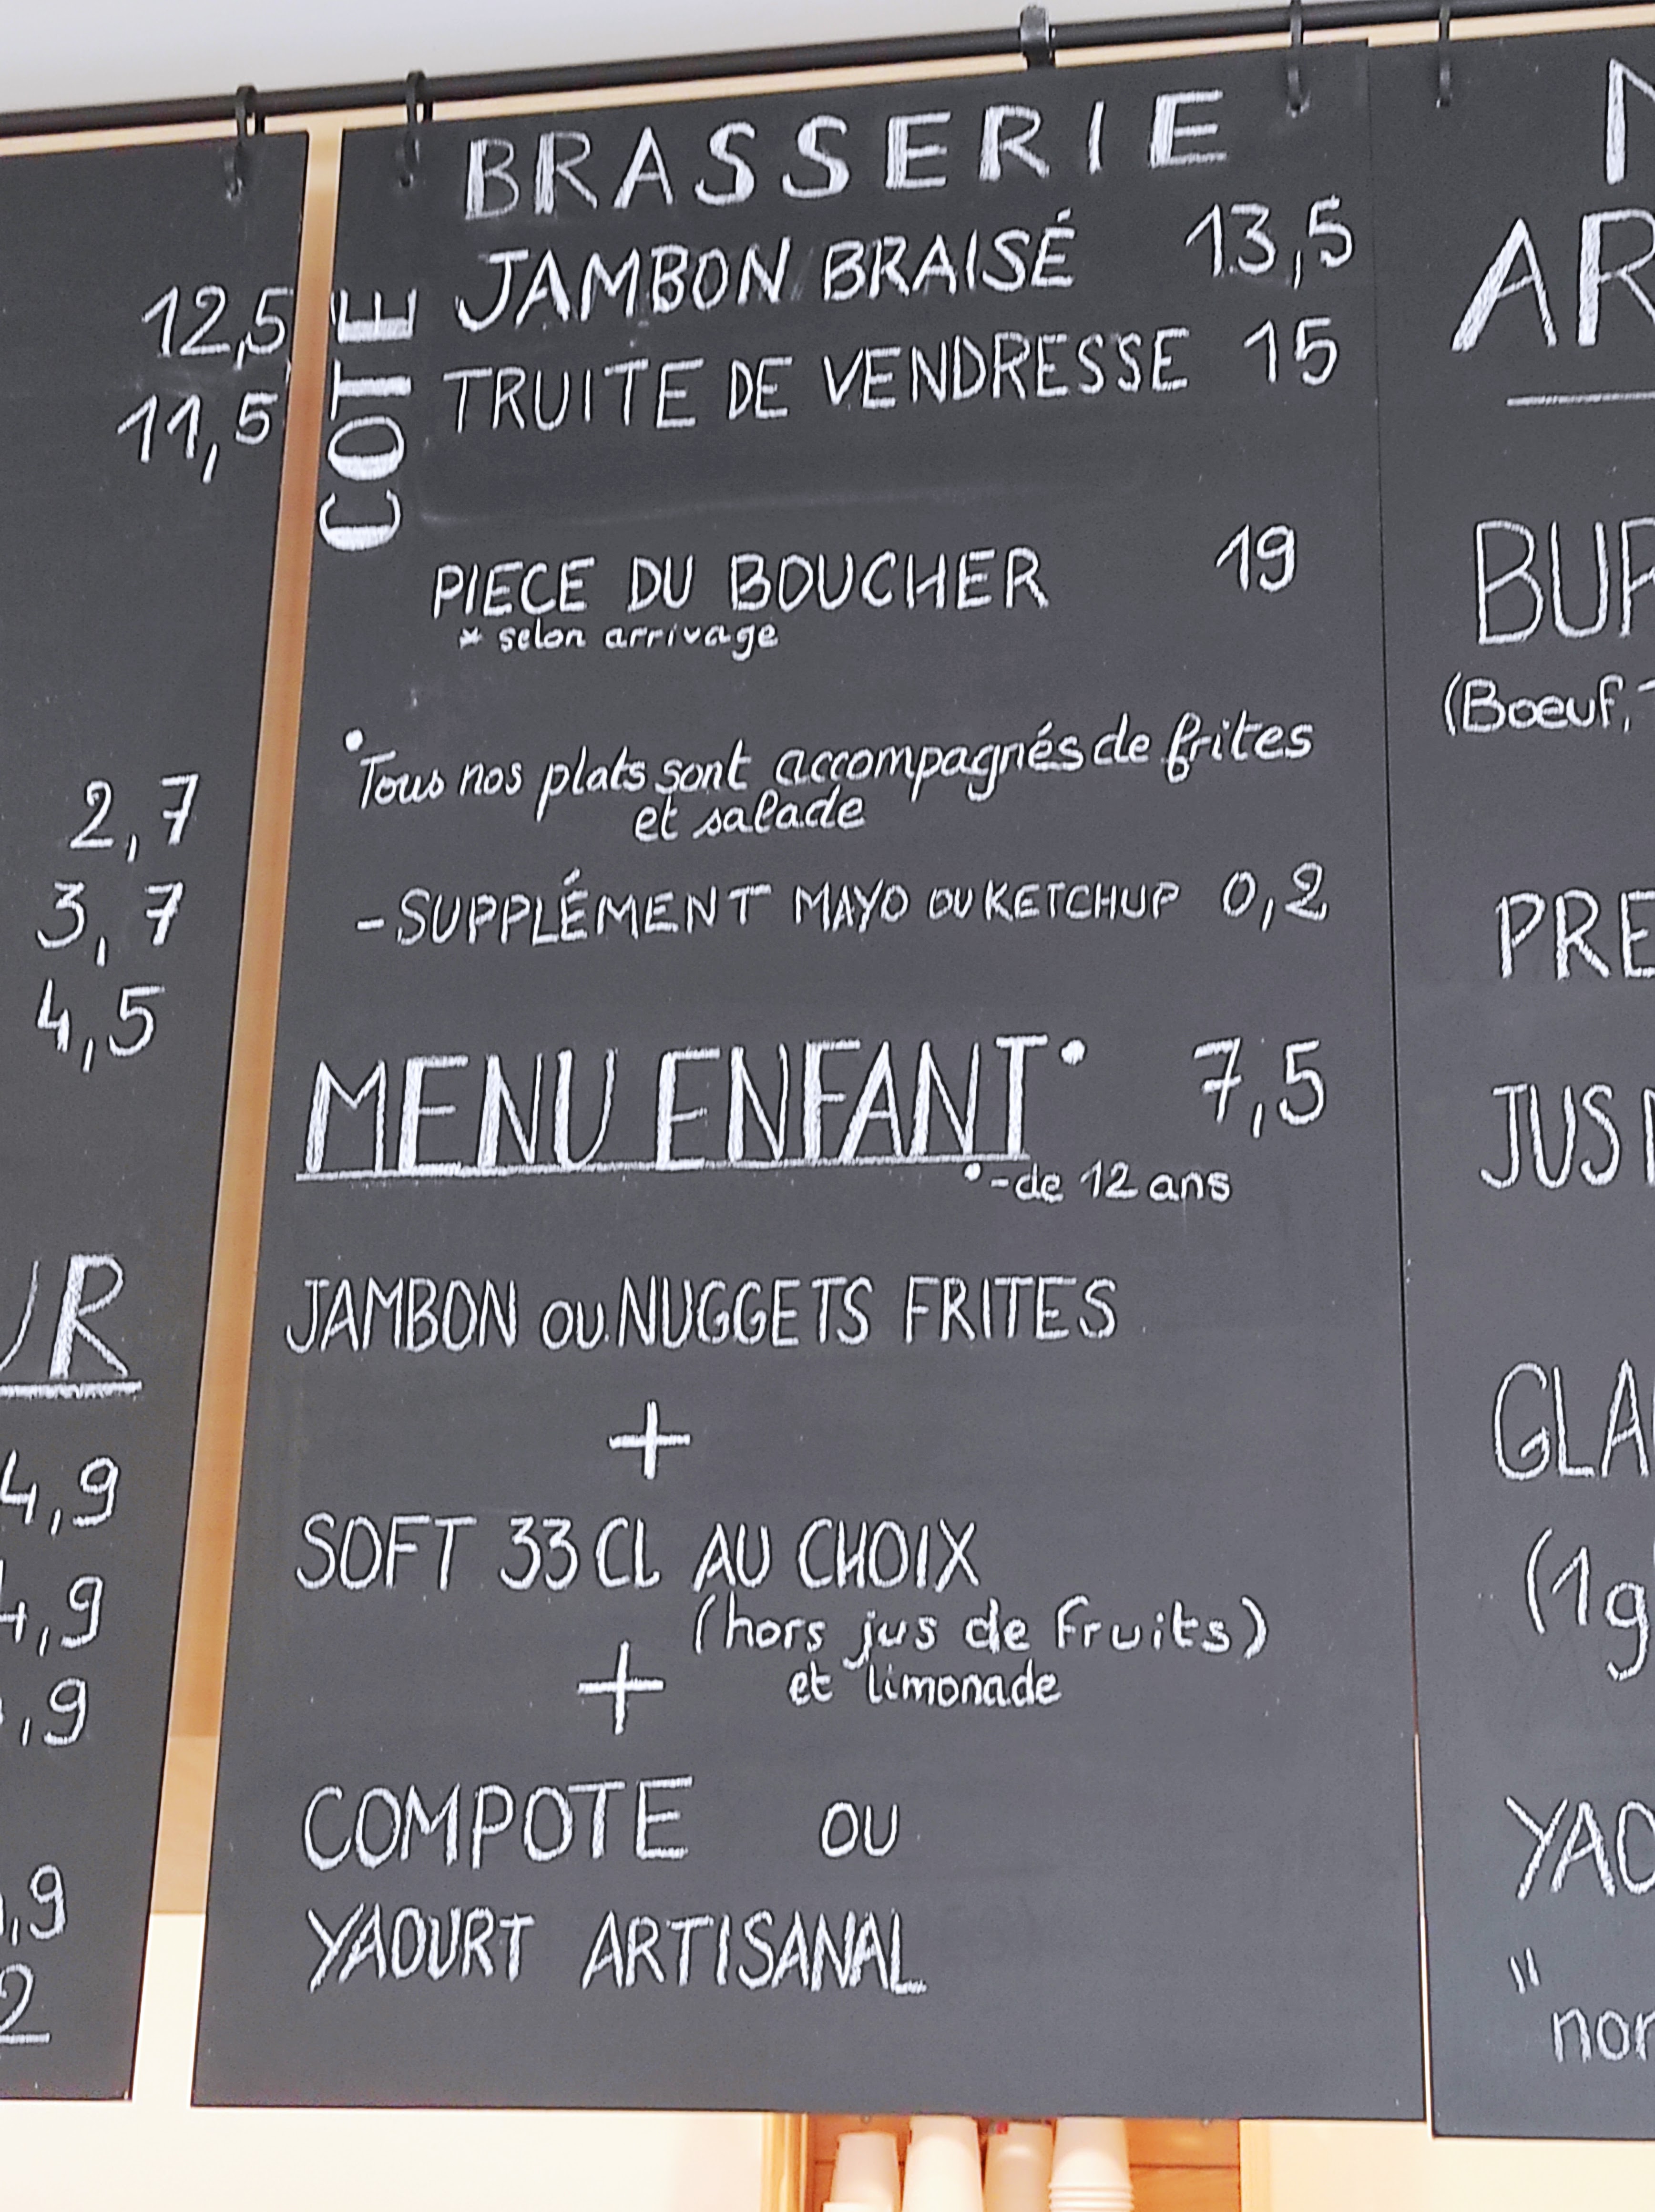 12,5
11,5
2,7
3,7
4,5
UR
4,9
4,9
,9
,9
2
COTE
BRASSERIE
JAMBON BRAISÉ 13,5
TRUITE DE VENDRESSE 15
PIECE DU BOUCHER 19
* selon arrivage
•Tous nos plats sont accompagnés de frites
et salade
- SUPPLÉMENT MAYO OU KETCHUP 0,2
MENU ENFANT• 7,5
•-de 12 ans
JAMBON OU NUGGETS FRITES
+
SOFT 33 CL AU CHOIX
(hors jus de fruits)
et limonade
+
COMPOTE OU
YAOURT ARTISANAL
AR
BUR
(Boeuf,
PRE
JUS
GLA
(1g
YAO
"
nor